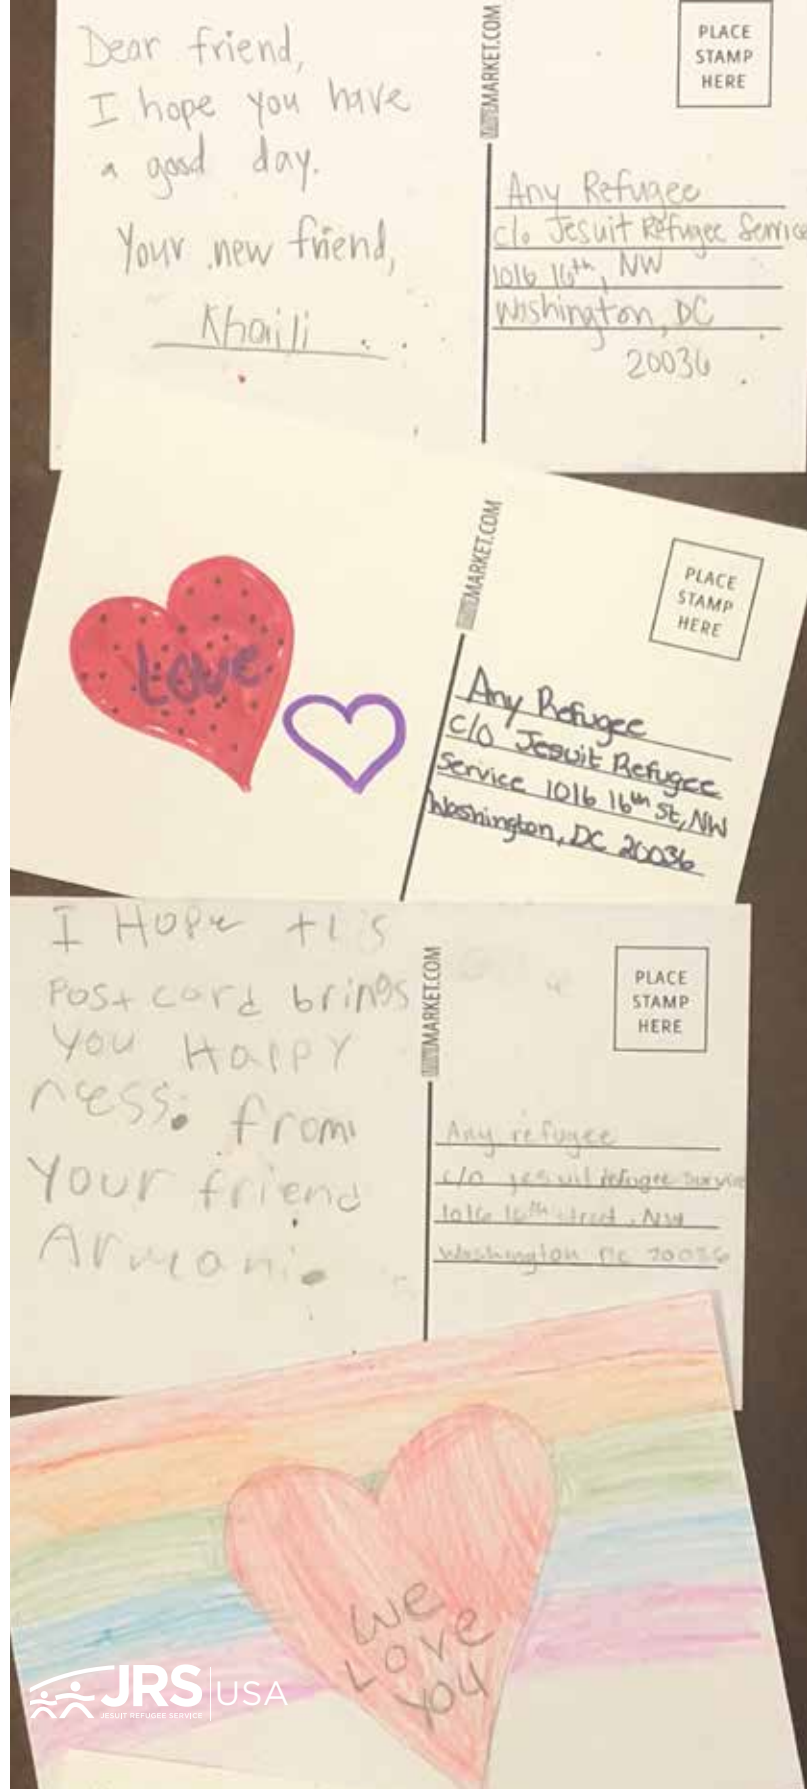 Dear friend,
I hope you have
a good day.
Your new friend,
Khaili
MARKET.COM
PLACE
STAMP
HERE
Any Refugee
c/o Jesuit Refugee Service
1016 16th, NW
Washington, DC
20036
Love
MARKET.COM
PLACE
STAMP
HERE
Any Refugee
C/O Jesuit Refugee
Service 1016 16th St, NW
Washington, DC 20036
I Hope this
Post card brings
you Happy
ness. from
Your friend
Armani.
MARKET.COM
PLACE
STAMP
HERE
Any refugee
c/o jesuit refugee service
1016 16th street, NW
Washington DC 20036
We
Love
you
JRS USA
JESUIT REFUGEE SERVICE